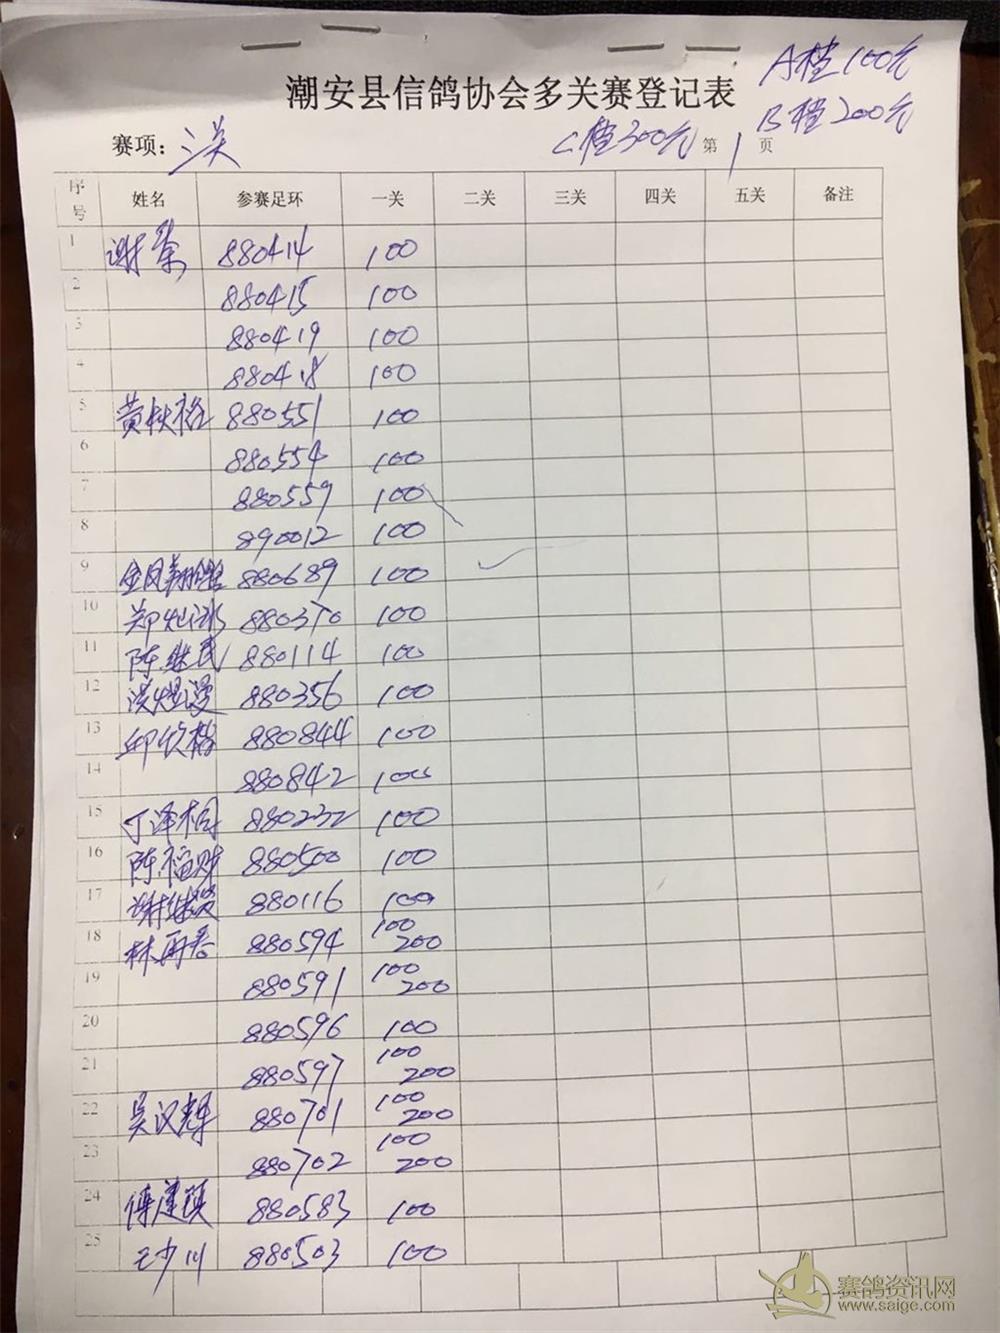 A档100元
潮安县信鸽协会多关赛登记表
B档200元
赛项：三关 C档300元 第1页
序号 姓名 参赛足环 一关 二关 三关 四关 五关 备注
1 880414 100
2 880415 100
3 880419 100
4 880418 100
5 880551 100
6 880554 100
7 880559 100
8 890012 100
9 880689 100
10 880370 100
11 陈继民 880114 100
12 880356 100
13 880844 100
14 880842 100
15 丁泽桐 880232 100
16 陈福财 880500 100
17 880116 100
18 林再春 880594 100 200
19 880591 100 200
20 880596 100
21 880597 100 200
22 吴汉辉 880701 100 200
23 880702 100 200
24 880583 100
25 王少川 880503 100
赛鸽资讯网
www.saige.com